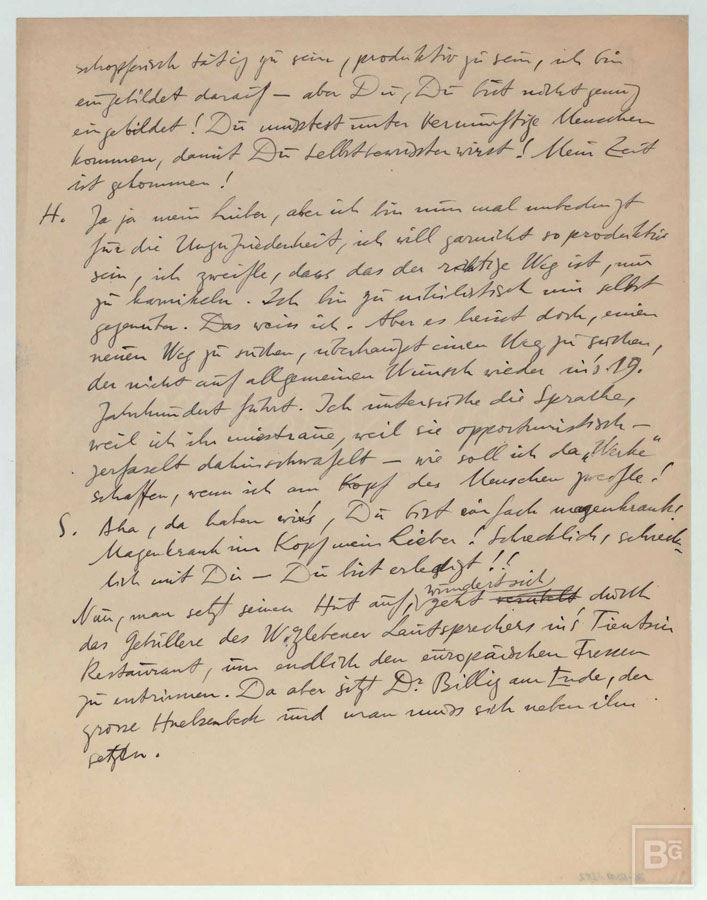 schöpferisch tätig zu sein, produktiv zu sein, ich bin
eingebildet darauf – aber Du, Du bist nicht genug
eingebildet! Du müsstest unter vernünftige Menschen
kommen, damit Du selbstbewusster wirst! Mein Zeit
ist gekommen!
H. Ja ja mein Lieber, aber ich bin nun mal unbedingt
für die Unzufriedenheit, ich will garnicht so produktiv
sein, ich zweifle, dass das der richtige Weg ist, nur
zu karnikeln. Ich bin zu nihilistisch mir selbst
gegenüber. Das weiss ich. Aber es heisst doch, einen
neuen Weg zu suchen, überhaupt einen Weg zu suchen,
der nicht auf allgemeinen Wunsch wieder in's 19.
Jahrhundert führt. Ich untersuche die Sprache,
weil ich ihr misstraue, weil sie opportunistisch –
zerfaselt dahinschwafelt – wie soll ich da „Werke"
schaffen, wenn ich am Kopf des Menschen zweifle!
S. Aha, da haben wir's, Du bist einfach magenkrank!
Magenkrank im Kopf mein Lieber! Schrecklich, schreck-
lich mit Dir – Du bist erledigt!!
Nun, man setzt seinen Hut auf, wundert sich geht durch
das Gebüllere des Witzlebener Lautsprechers in's Tientsin
Restaurant, um endlich den europäischen Fressen
zu entrinnen. Da aber sitzt Dr. Billig am Ende, der
grosse Huelsenbeck und man muss sich neben ihn
setzen.
BG